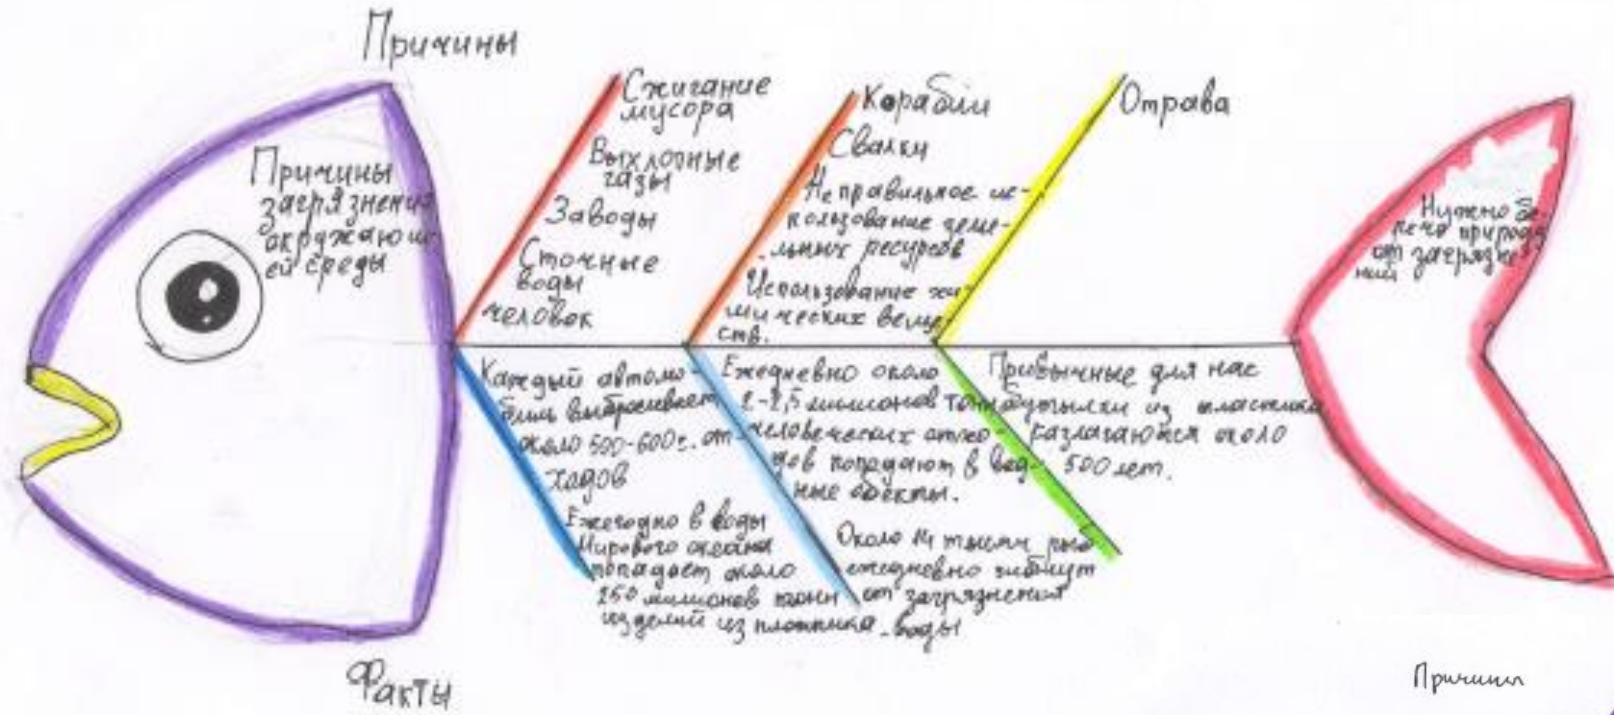 Причины
Причины
загрязнения
окружающ-
ей среды
Сжигание
мусора
Выхлопные
газы
Заводы
Сточные
воды
человек
Корабли
Свалки
Не правильное ис-
пользование земе-
льных ресурсов
Использование хи-
мических веще-
ств.
Отрава
Нужно бе-
речь природу
от загрязне-
ний
Каждый автомо-
биль выбрасывает
около 500-600г. от-
ходов
Ежегодно в воды
Мирового океана
попадает около
250 милионов тонн
изделий из пластика
Ежедневно около
2-2,5 милионов тонн
человеческих отхо-
дов попадают в вод-
ные обекты.
Около 14 тысяч рыб
ежедневно гибнут
от загрязнения
воды
Привычные для нас
бутылки из пластика
разлагаются около
500 лет.
Факты
Причины